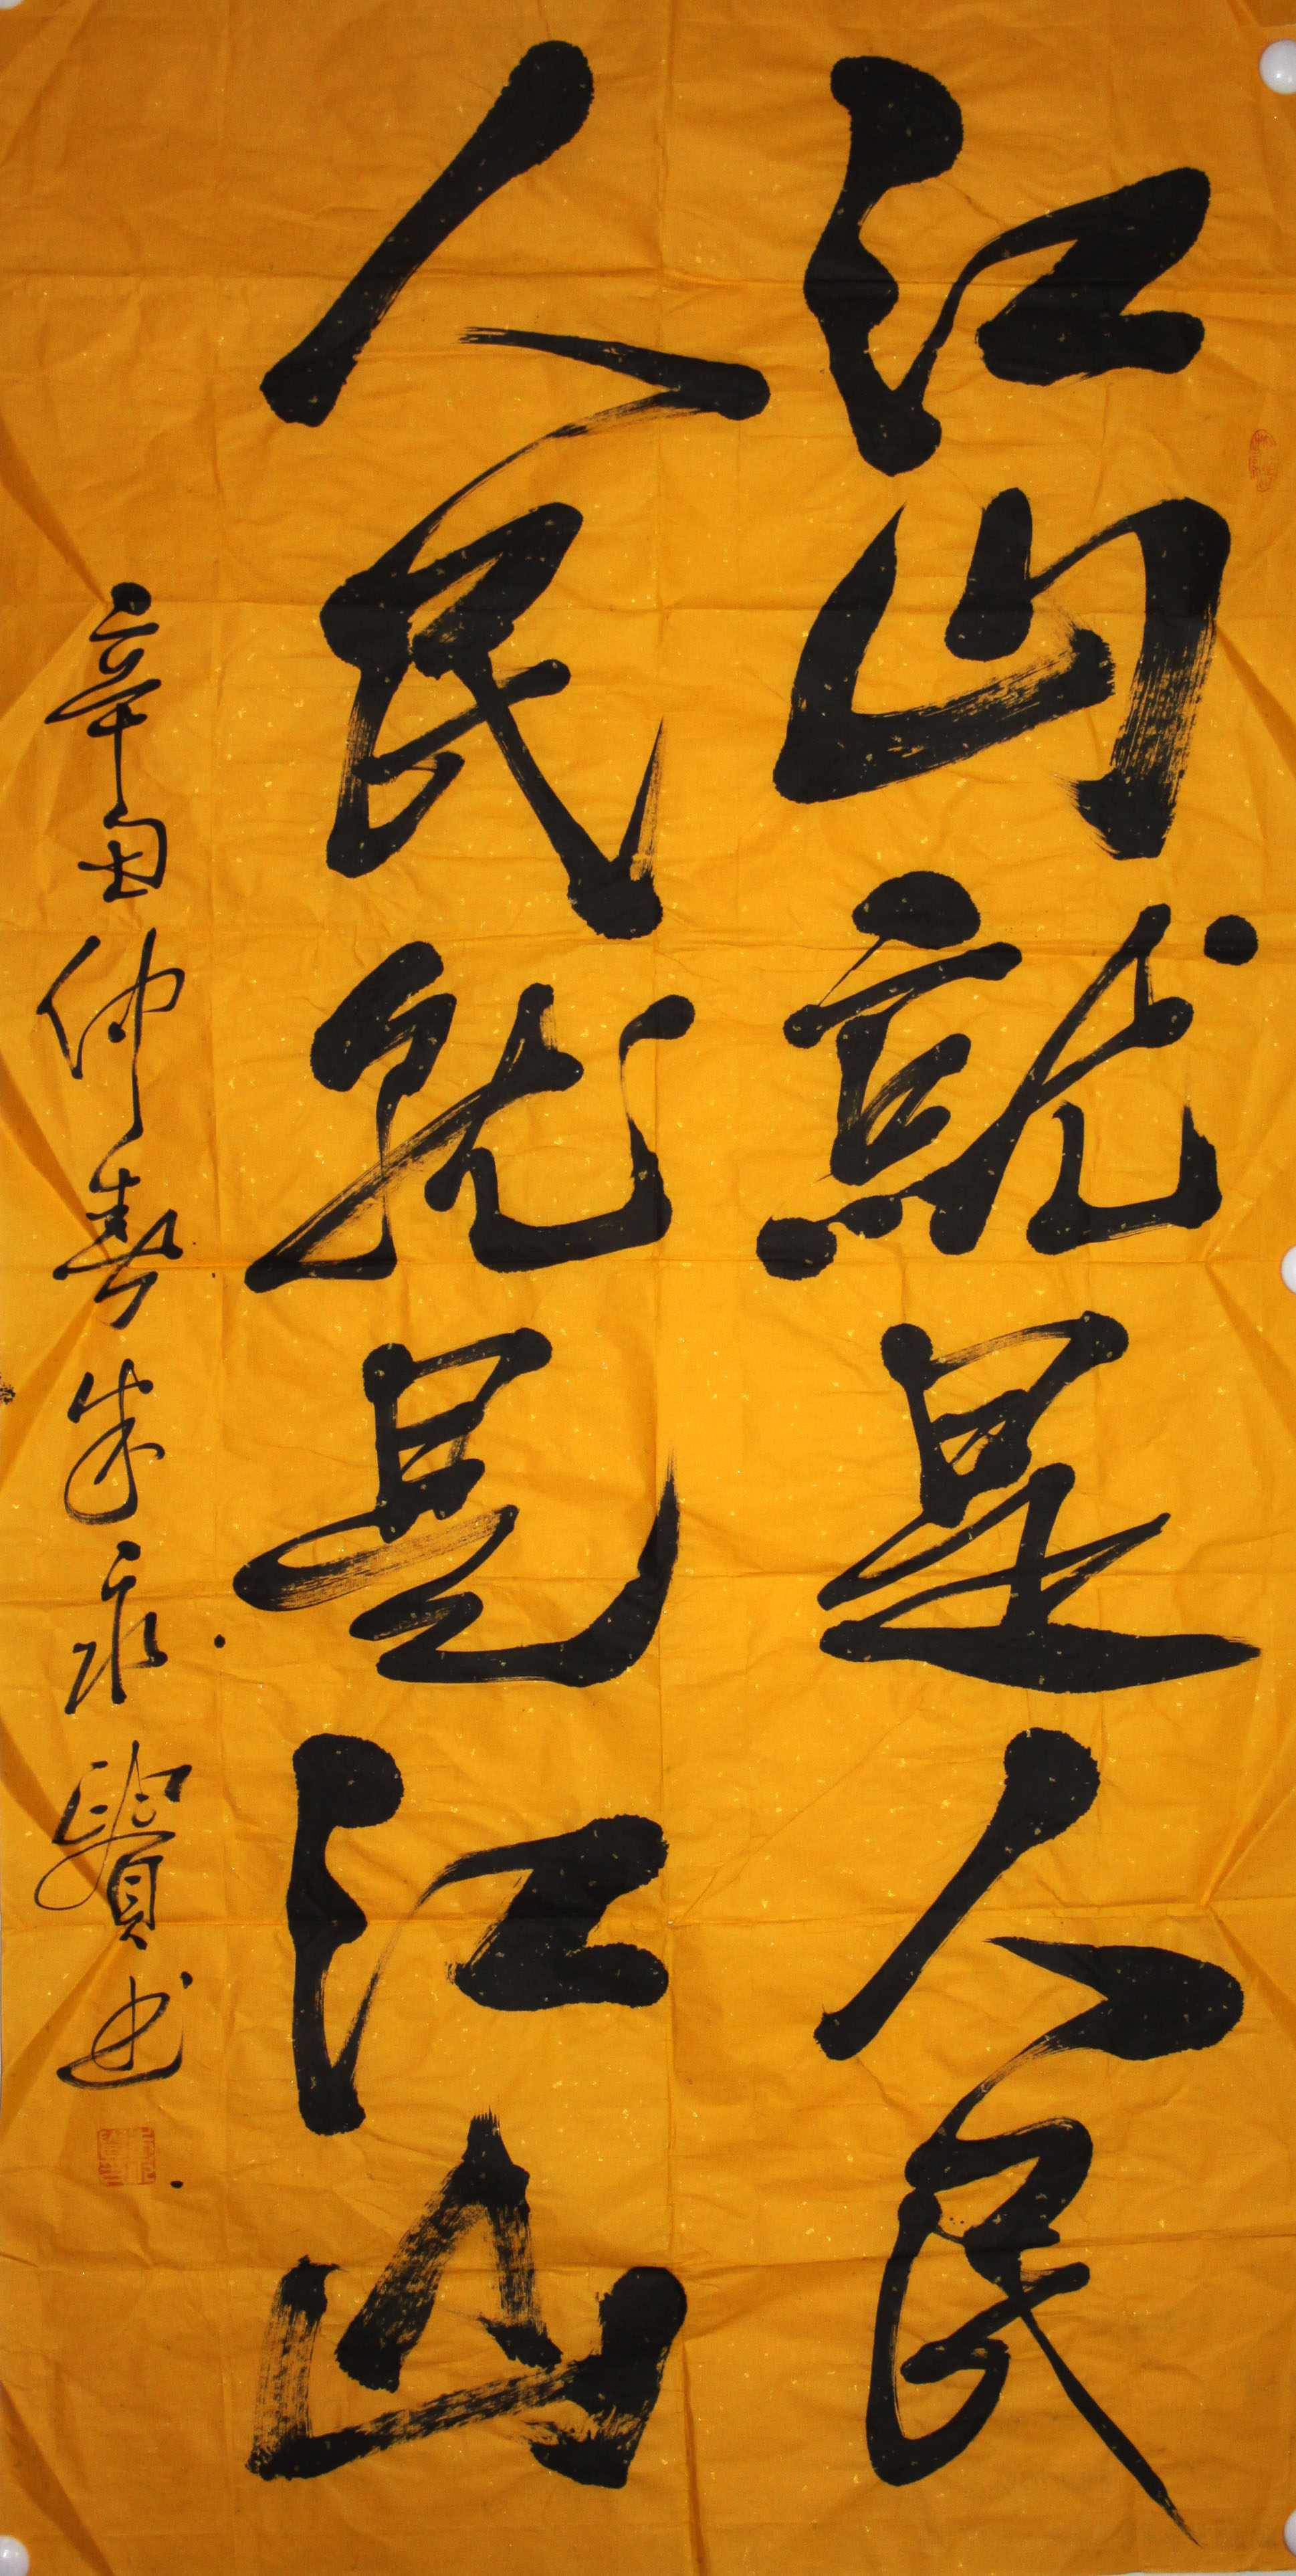 江山就是人民
人民就是江山
辛丑仲春朱永贤书